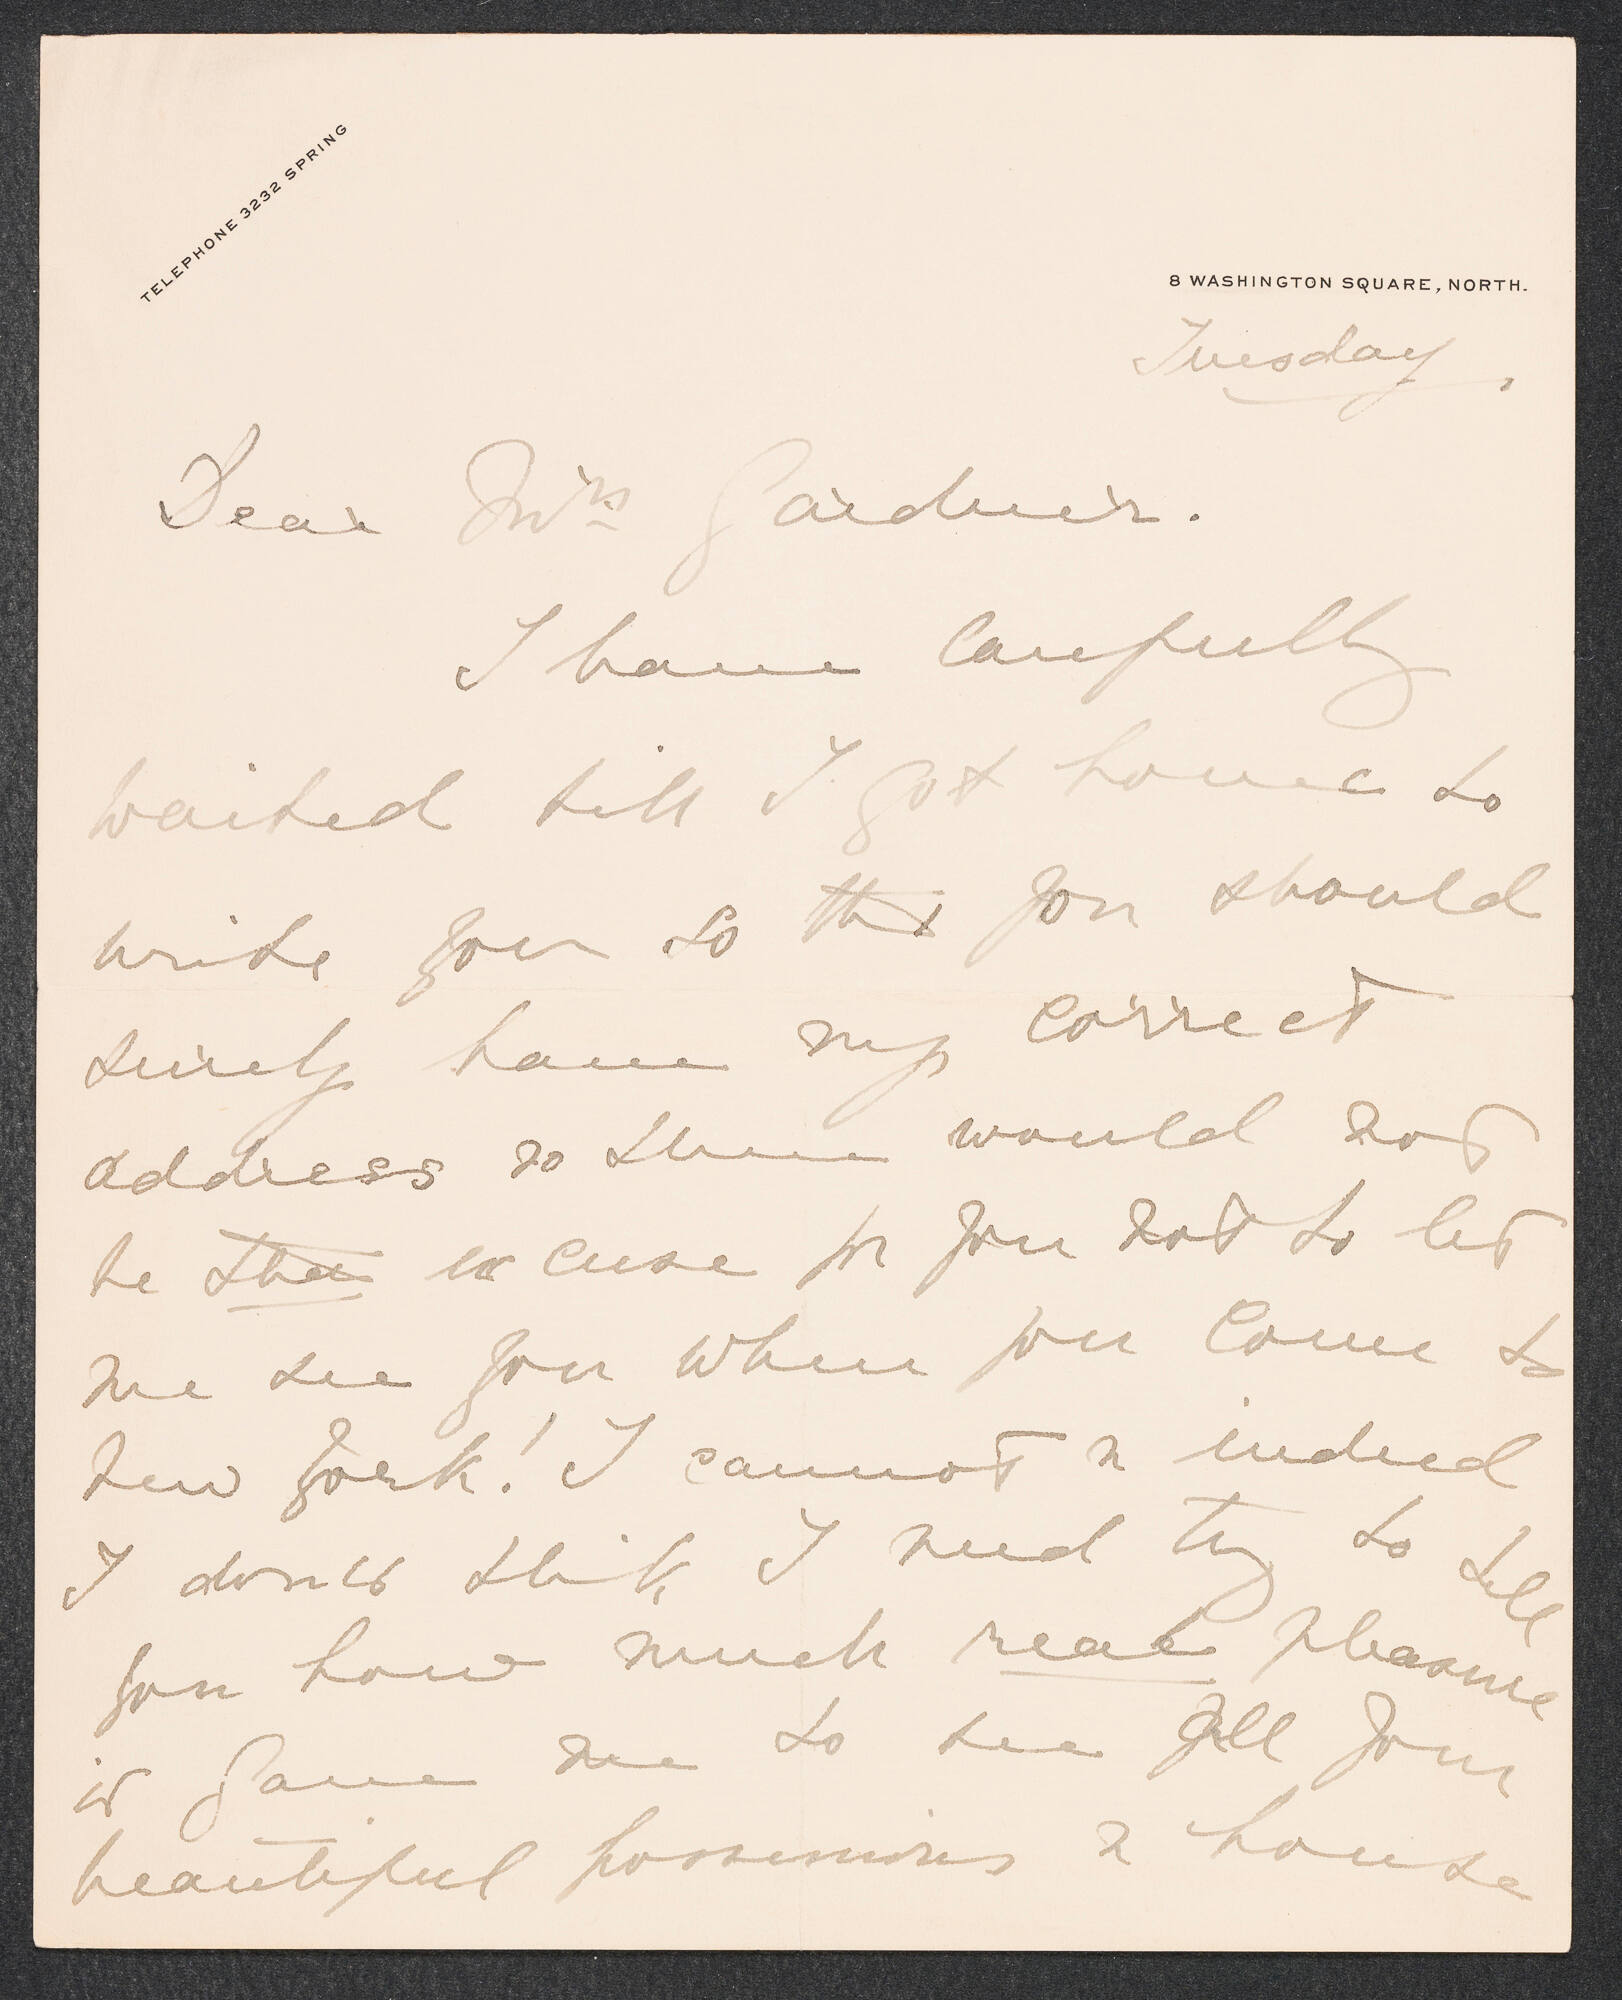 TELEPHONE 3232 SPRING
8 WASHINGTON SQUARE, NORTH.
Tuesday,
Dear Mrs Gardner.
I have carefully
waited till I got home to
write you so tht you should
surely have my correct
address so there would not
be that excuse for you not to let
me see you when you come to
New York! I cannot & indeed
I don't think I need try to tell
you how much real pleasure
it gave me to see all your
beautiful possessions & house